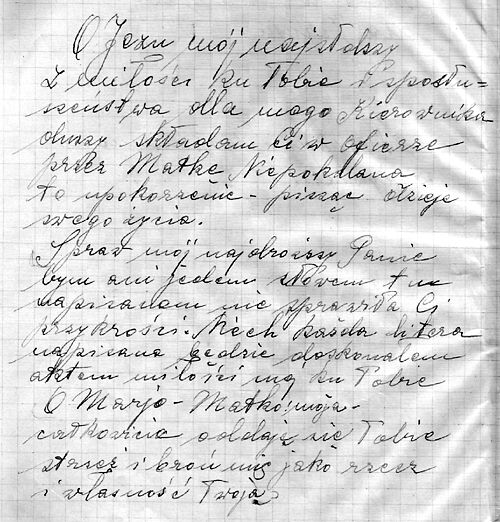 O Jezu mój najsłodszy
z miłości ku Tobie i z posłu=
szeństwa dla mego Kierownika
duszy składam Ci w ofierze
przez Matkę Niepokalaną
to upokorzenie - pisząc dzieje
swego życia.
Spraw mój najdroższy Panie
bym ani jednem słowem tu
napisanem nie sprawiła Ci
przykrości. Niech każda litera
napisana będzie doskonałem
aktem miłości mej ku Tobie
O Marjo - Matko moja -
całkowicie oddaję się Tobie
strzeż i broń mię jako rzecz
i własność Twoją